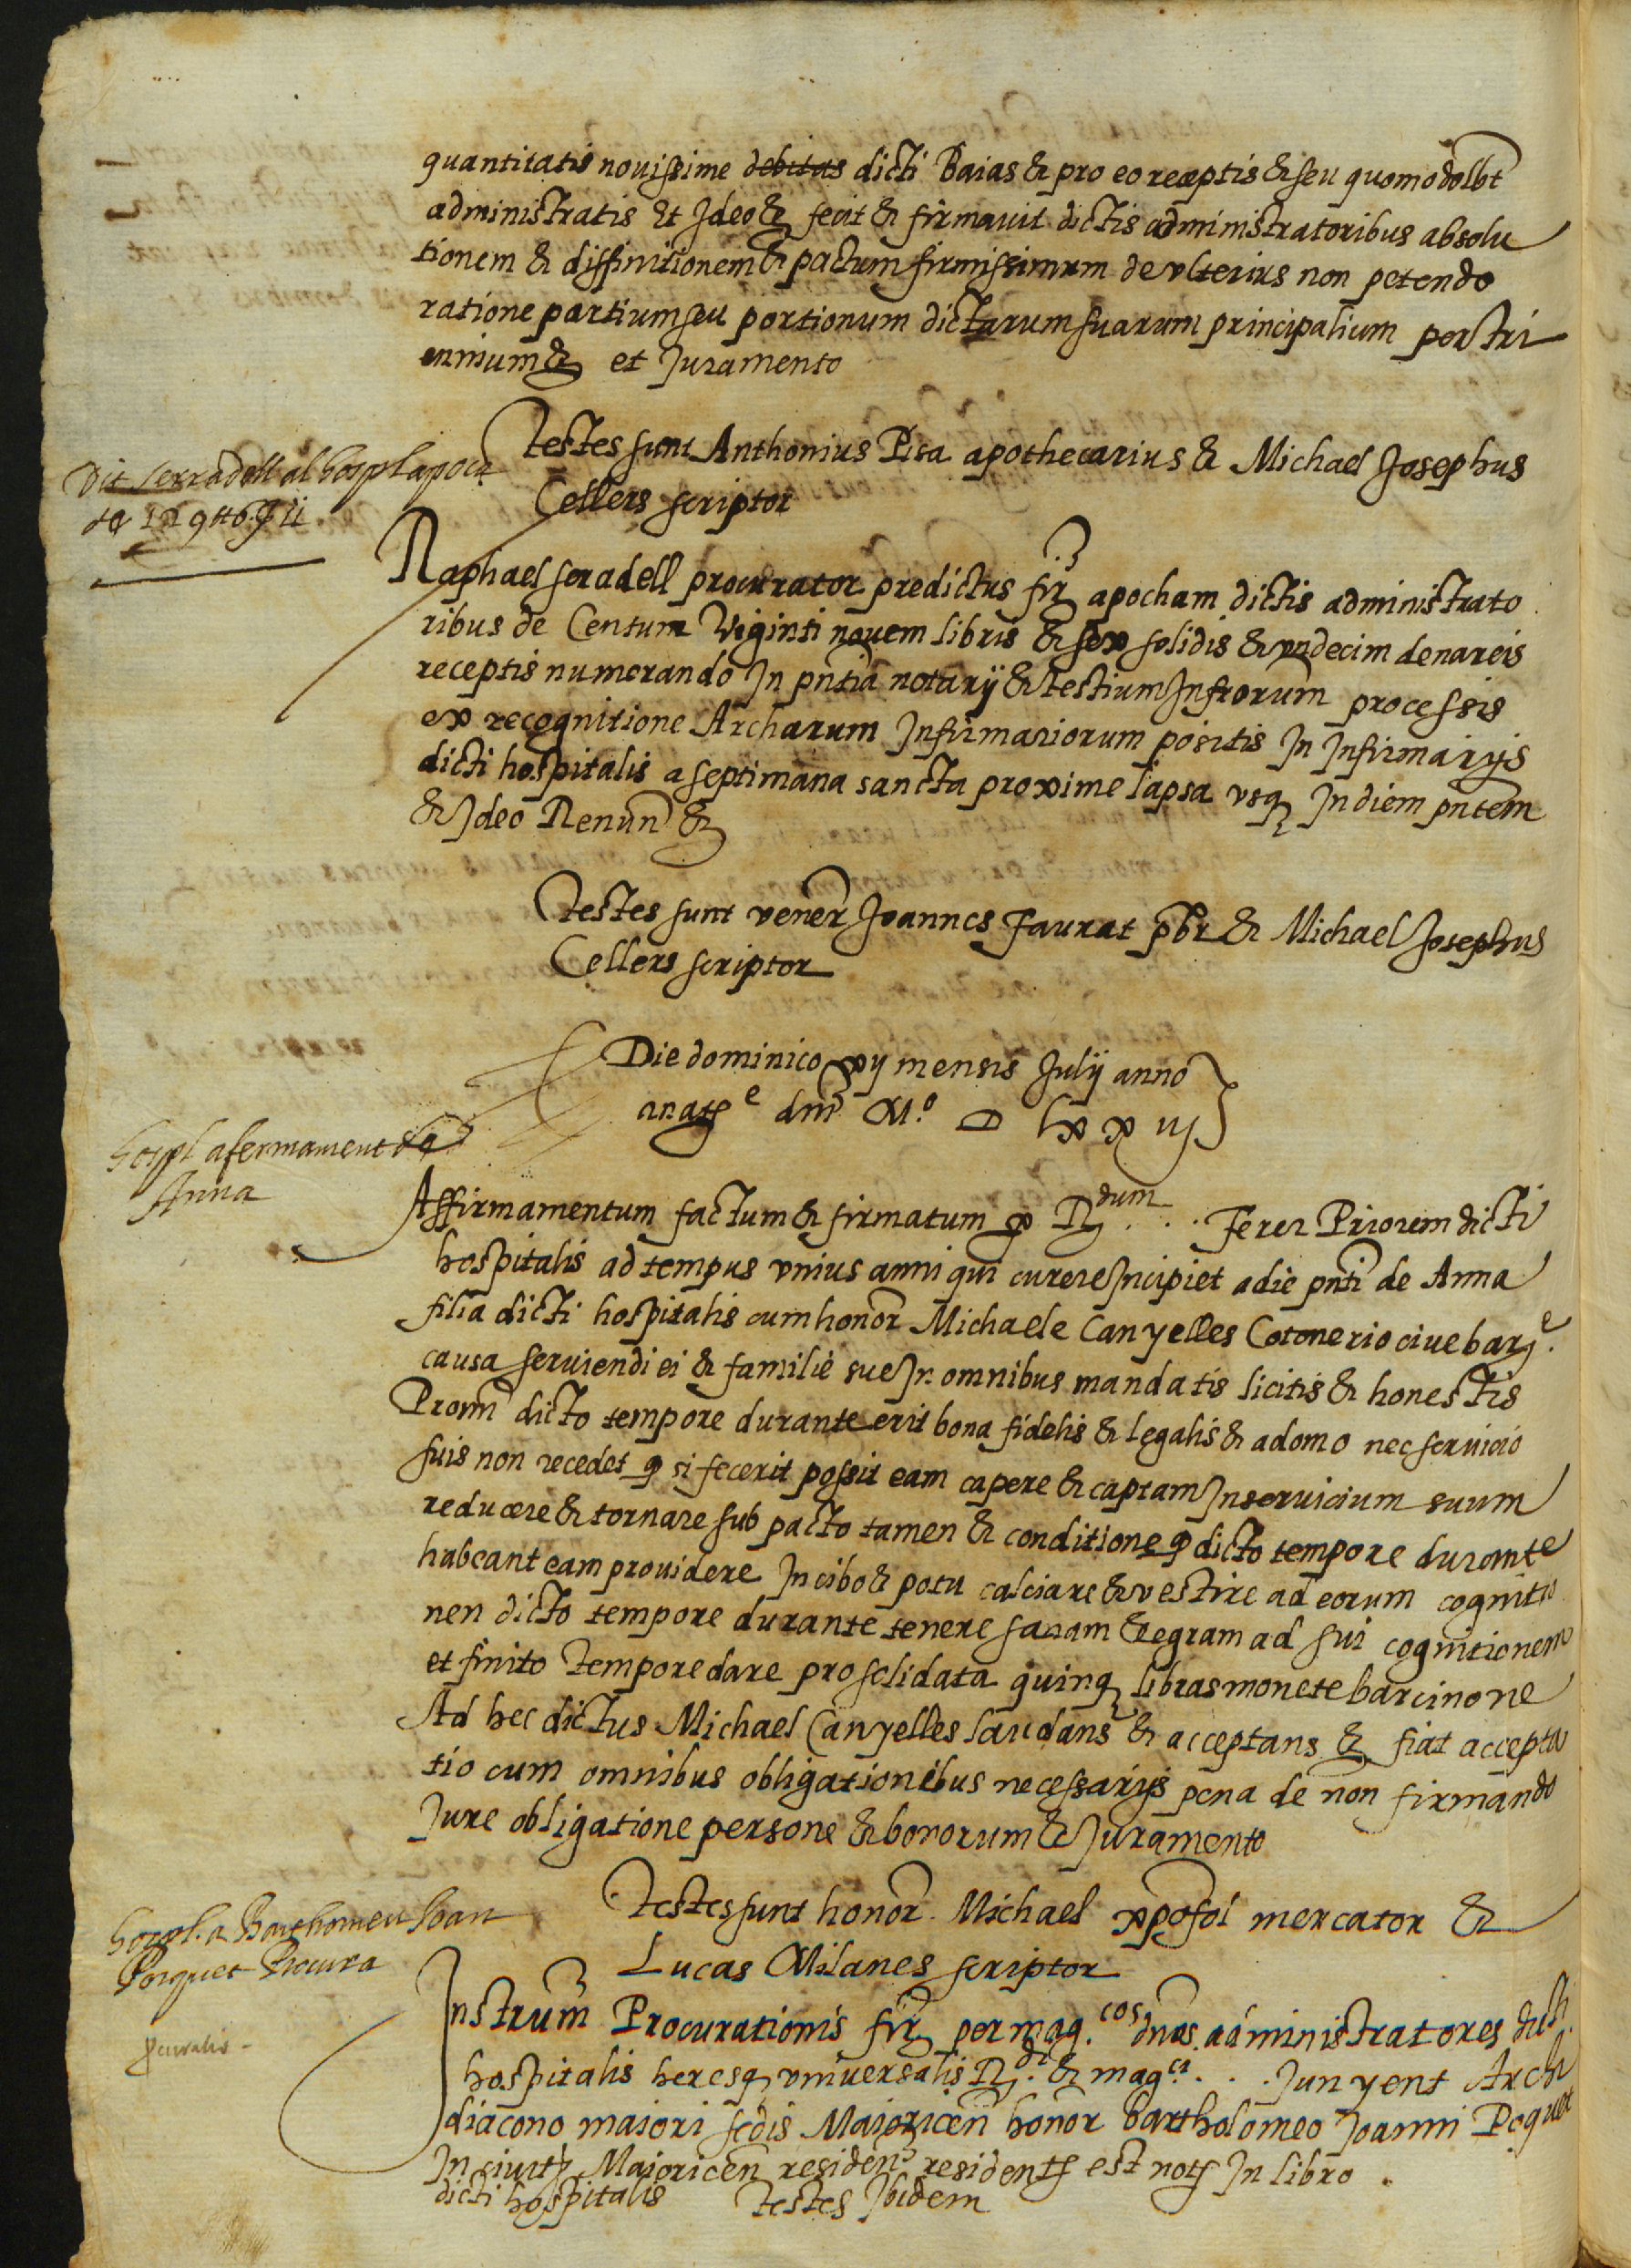 quantitatis nouissime debitas dicti Baias & pro eo receptis & seu quomodolbt
administratis Et Ideo &ᵃ fecit & firmauit dictis administratoribus absolu
tionem & diffinitionem & pactum firmissimum de vlterius non petendo
ratione partium seu portionum dictarum suarum principalium per tri
ennium &ᵃ et Juramento
Testes sunt Anthonius Pisa apothecarius & Michael Josephus
Cellers scriptor
Dit Serradell al hospl apoca
de 129 ₶ 6 ẞ 11
Raphael seradell procurator predictus fir apocham dictis administrato
ribus de Centum Viginti nouem libris & sex solidis & vndecim denareis
receptis numerando In pntia notarij & testium Infrorum processis
ex recognitione Archarum Infirmariorum positis In Infirmarijs
dicti hospitalis a septimana sancta proxime lapsa vsq In diem pntem
& Ideo Renun &ᵃ
Testes sunt vener Joannes Faurat pbr & Michael Josephus
Cellers scriptor
Die dominico xij mensis Julij anno
anatᵉ dni M.º D Lxx iij
hospl afermament de
Anna
Affirmamentum factum & firmatum p Rdum . . . Ferer Priorem dicti
hospitalis ad tempus vnius anni qui curere Incipiet a die pnti de Anna
filia dicti hospitalis cum honor Michaele Canyelles Cotonerio ciue barᵉ.
causa seruiendi ei & familie sue In omnibus mandatis licitis & honestis
Promi dicto tempore durante erit bona fidelis & legalis & a domo nec seruicio
suis non recedet q si fecerit possit eam capere & captam In seruicium suum
reducere & tornare sub pacto tamen & conditione q dicto tempore durante
habeant eam prouidere In cibo & potu calciare & vestire ad eorum cognitio
nen dicto tempore durante tenere sanam & egram ad sui cognitionem
et finito tempore dare pro solidata quinq libras monete barcinone
Ad hec dictus Michael Canyelles laudans & acceptans &ᵃ fiat accepta
tio cum omnibus obligationibus necessarijs pena de non firmando
Jure obligatione persone & bonorum & Juramento
Testes sunt honor. Michael xpofol mercator &
Lucas Milanes scriptor
hospl. a Barthomeu Joan
Poquet Procura
Instrum Procurationis fir per mag.cos dnos administratores dicti
hospitalis heresq vniuersalis Rdi. & magci. . . . Junyent Archi
diacono maiori sedis Maioricen honor Bartholomeo Joanni Poquet
In ciuit Maioricen residen resident est not In libro .
dicti hospitalis Testes Ibidem